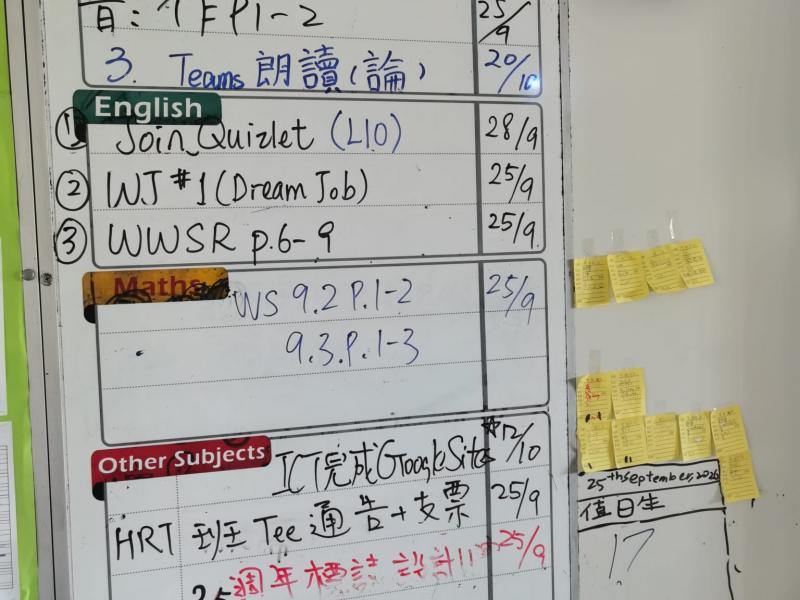 P1-2 25/9
3. Teams 朗讀(論) 20/10
English
① Join Quizlet (L10) 28/9
② WJ #1 (Dream Job) 25/9
③ WWSR p.6-9 25/9
Maths
WS 9.2 P.1-2 25/9
9.3.P.1-3
Other Subjects
ICT完成Google Site 12/10
HRT 班 Tee 通告+支票 25/9
25週年標誌設計!! 25/9
25th September, 2026
值日生
17